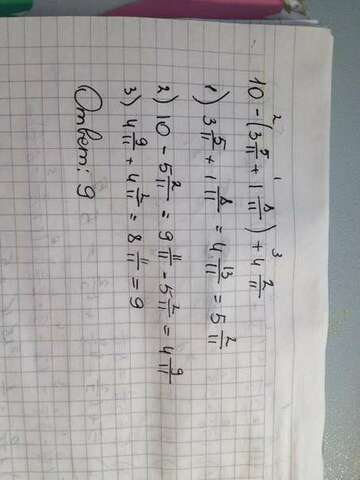 10 - (3 5/11 + 1 8/11) + 4 2/11
1) 3 5/11 + 1 8/11 = 4 13/11 = 5 2/11
2) 10 - 5 2/11 = 9 11/11 - 5 2/11 = 4 9/11
3) 4 9/11 + 4 2/11 = 8 11/11 = 9
Ответ: 9